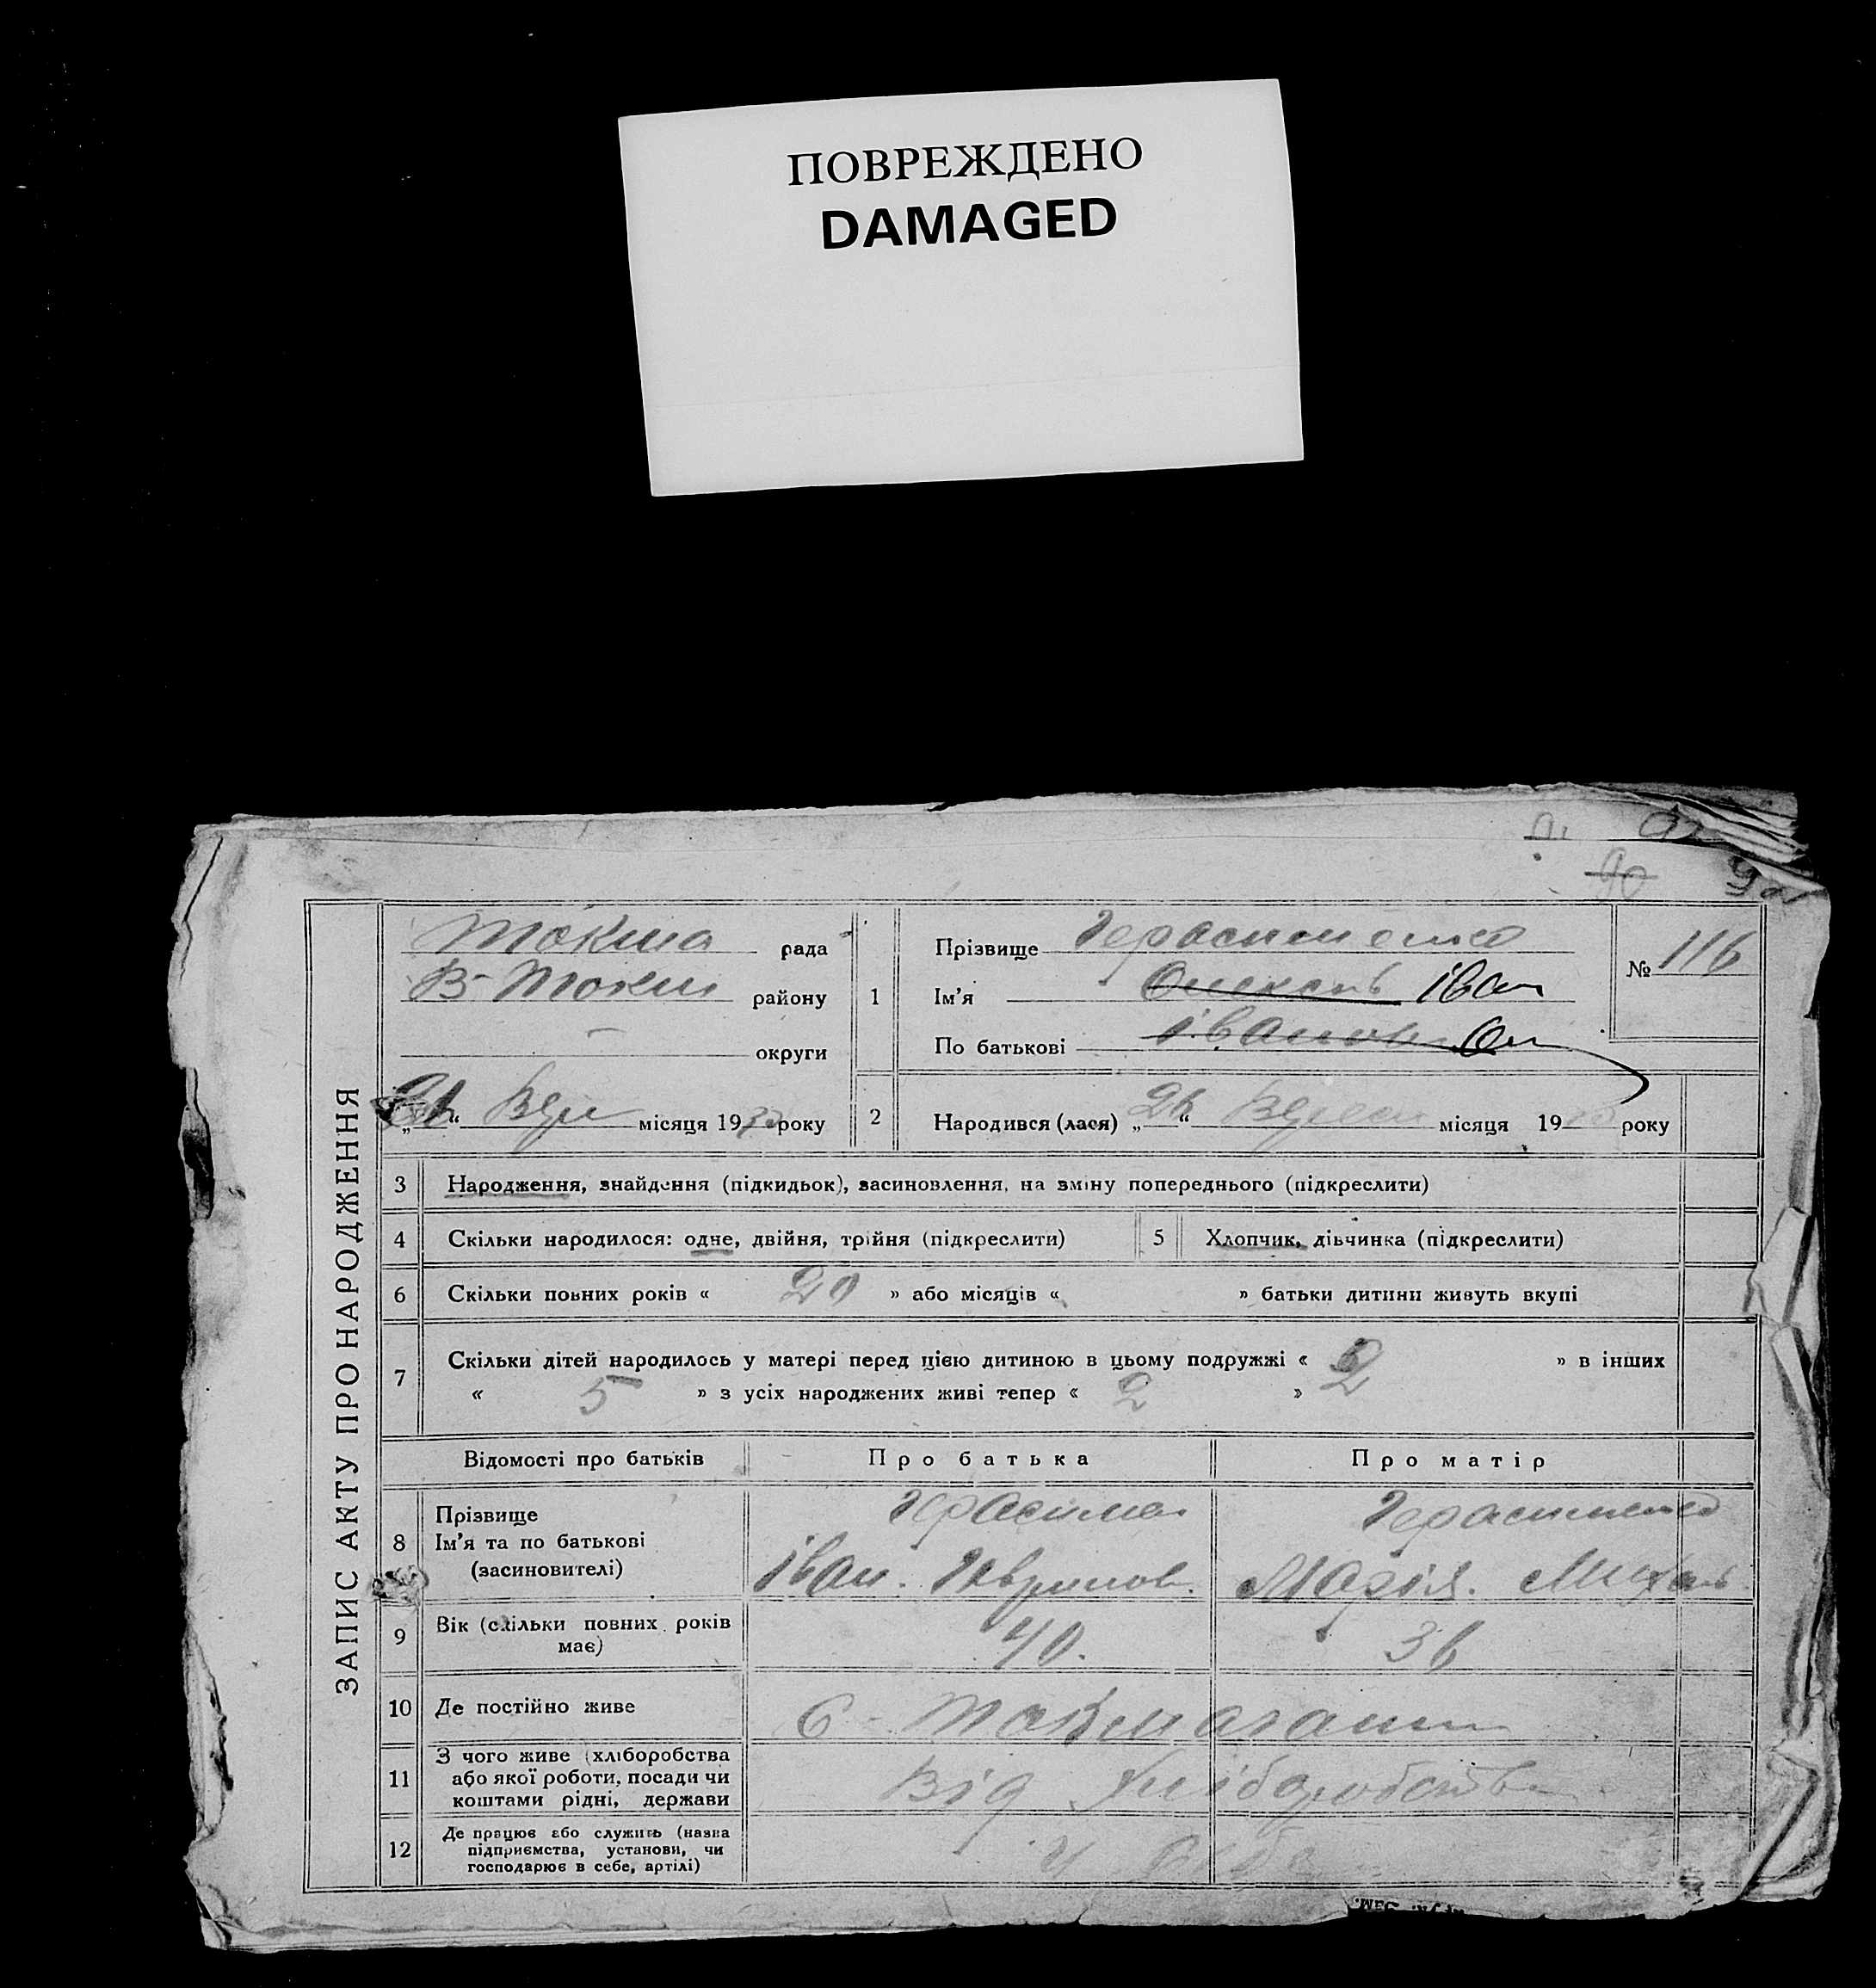 ПОВРЕЖДЕНО
DAMAGED
90
ЗАПИС АКТУ ПРО НАРОДЖЕННЯ
Токма рада
В-Токм району
округи
Вер місяця 193 року
1
Прізвище Герасименко
Ім'я Іван
По батькові Іванов
№ 116
2 Народився (лася) „26“ Верес місяця 19 року
3 Народження, знайдення (підкидьок), засиновлення, на зміну попереднього (підкреслити)
4 Скільки народилося: одне, двійня, трійня (підкреслити) 5 Хлопчик, дівчинка (підкреслити)
6 Скільки повних років « 20 » або місяців « » батьки дитини живуть вкупі
7 Скільки дітей народилось у матері перед цією дитиною в цьому подружжі « 2 » в інших
« 5 » з усіх народжених живі тепер « 2 »
Відомості про батьків Про батька Про матір
8 Прізвище
Ім'я та по батькові
(засиновителі)
Герасимен
Іван.
Герасименко
Марія.
9 Вік (скільки повних років має) 40. 36
10 Де постійно живе С-
11 З чого живе (хліборобства
або якої роботи, посади чи
коштами рідні, держави
Від хліборобств
12 Де працює або служить (назва
підприємства, установи, чи
господарює в себе, артілі)